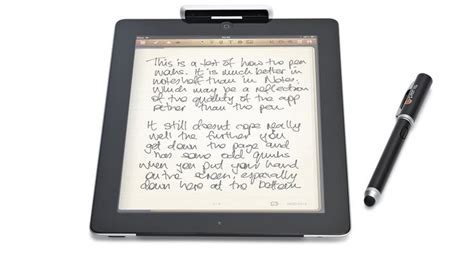 This is a test of how the pen
works. It is much better in
noteshelf than in Notes.
Which may be a reflection
of the quality of the app
rather than the pen.
It still doesnt cope really
well the further you
get down the page and
has some odd quirks
when you put your hand
on the screen, especially
down here at the bottom